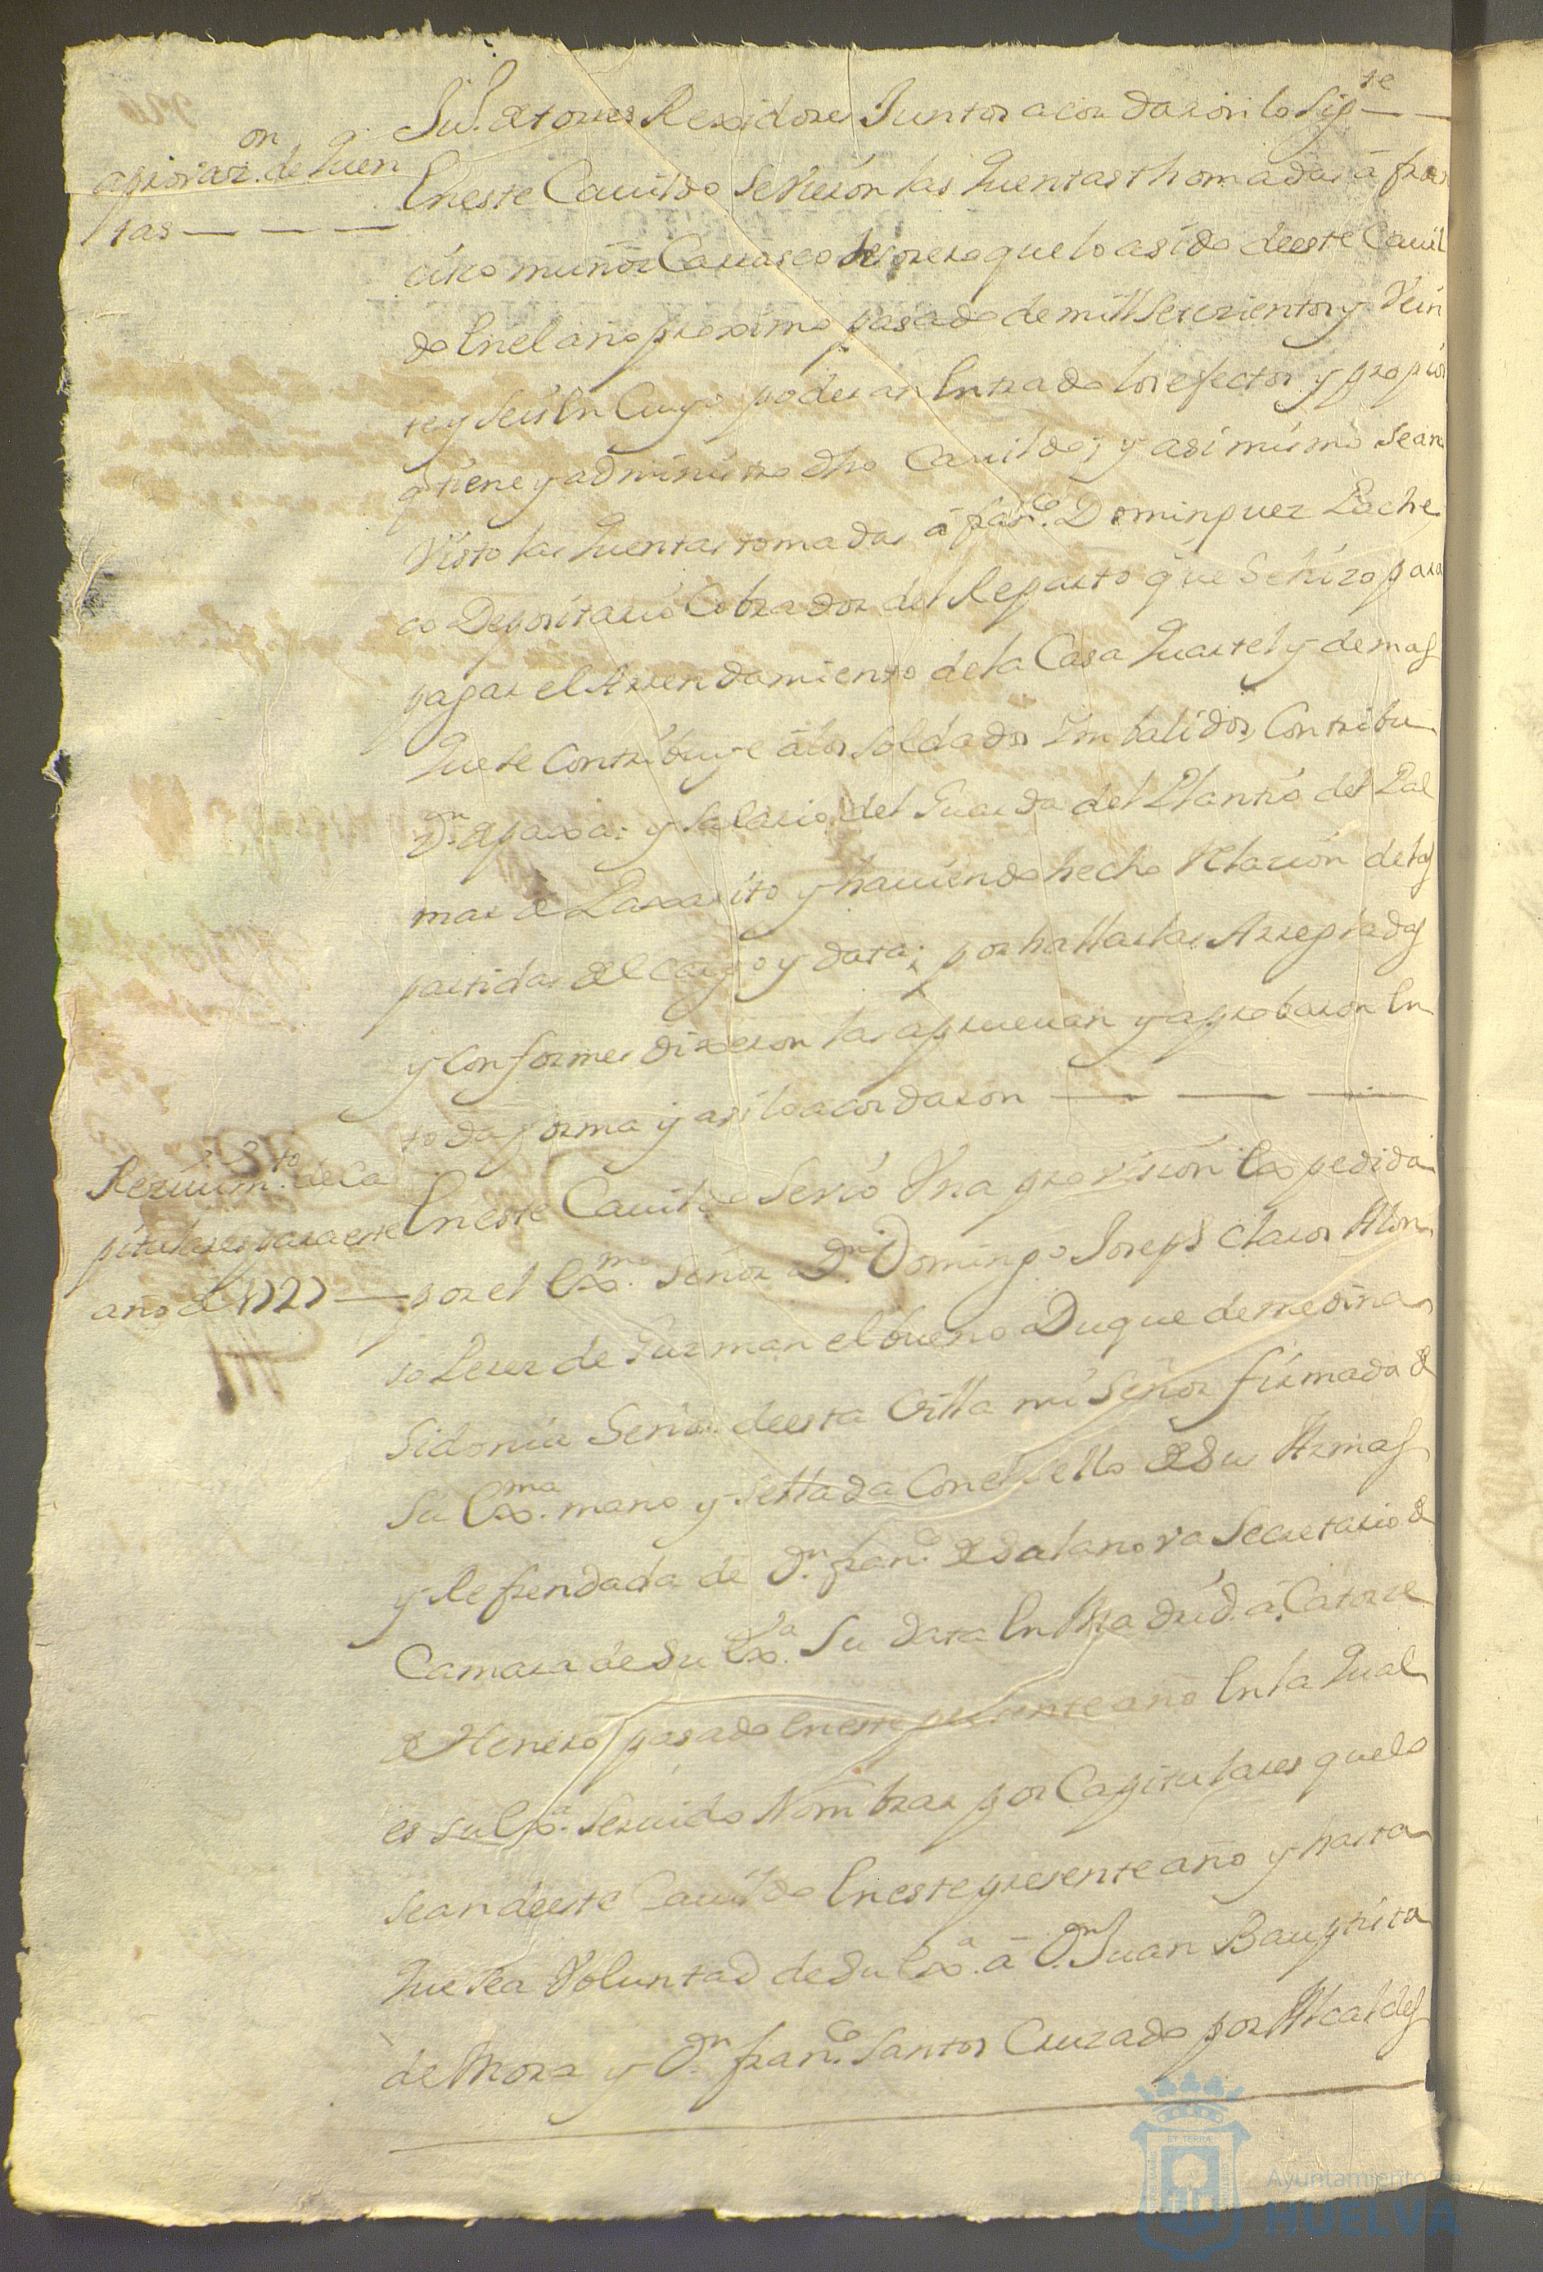 Ju.º de torres Rexidores Juntos acordaron lo sigte
aprovazon. de Quen
tas
En este Cavildo Se vieron las Quentas thomadas â fran
cisco muñoz Carrasco thesorero que lo a sido de este Cavil
do En el año proximo pasado de mill Setezientos y Vein
te y Seis En Cuyo poder an Entrado los efectos y propios
q tiene y administra dho Cavildo; y asi mismo Sean
Visto las Quentas tomadas â franco. Dominguez Pache
co Depositario Cobrador del Reparto que Se hizo para
pagar el Arrendamiento de la Casa Quartel y demas
Que se Contribuye â los Soldados Imbalidos, Contribu
zn. de paxa; y Salario del Guarda del Plantio del Pal
mar de Paxarito y haviendo hecho Relacion de las
partidas de Cargo y data; por hallarlas Arregladas
y Conformes dixeron las aprueuan y aprobaron En
toda forma y asi lo acordaron
Rezivimto. de Ca
pitulares para este
año de 1727
En este Cavildo Se vio Vna provision Expedida
por el Exmo. Señor Dn. Domingo Joseph Claros Alon
so Perez de Guzman el bueno Duque de medina
Sidonia Señor de esta Villa mi Señor firmada de
Su Exma. mano y Sellada Con el Sello de Sus Armas
y Refrendada de Dn. franco. de Salanova Secretario de
Camara de Su Exa. Su data En Madrid. â Catorze
de Henero pasado En este presente año En la Qual
es Su Exa. Servido Nombrar por Capitulares que lo
Sean de este Cavildo En este presente año y hasta
Que Sea Voluntad de Su Exa. â Dn. Juan Bauptista
de Mora y Dn. franco. Santos Cruzado por Alcaldes
Ayuntamiento de
HUELVA